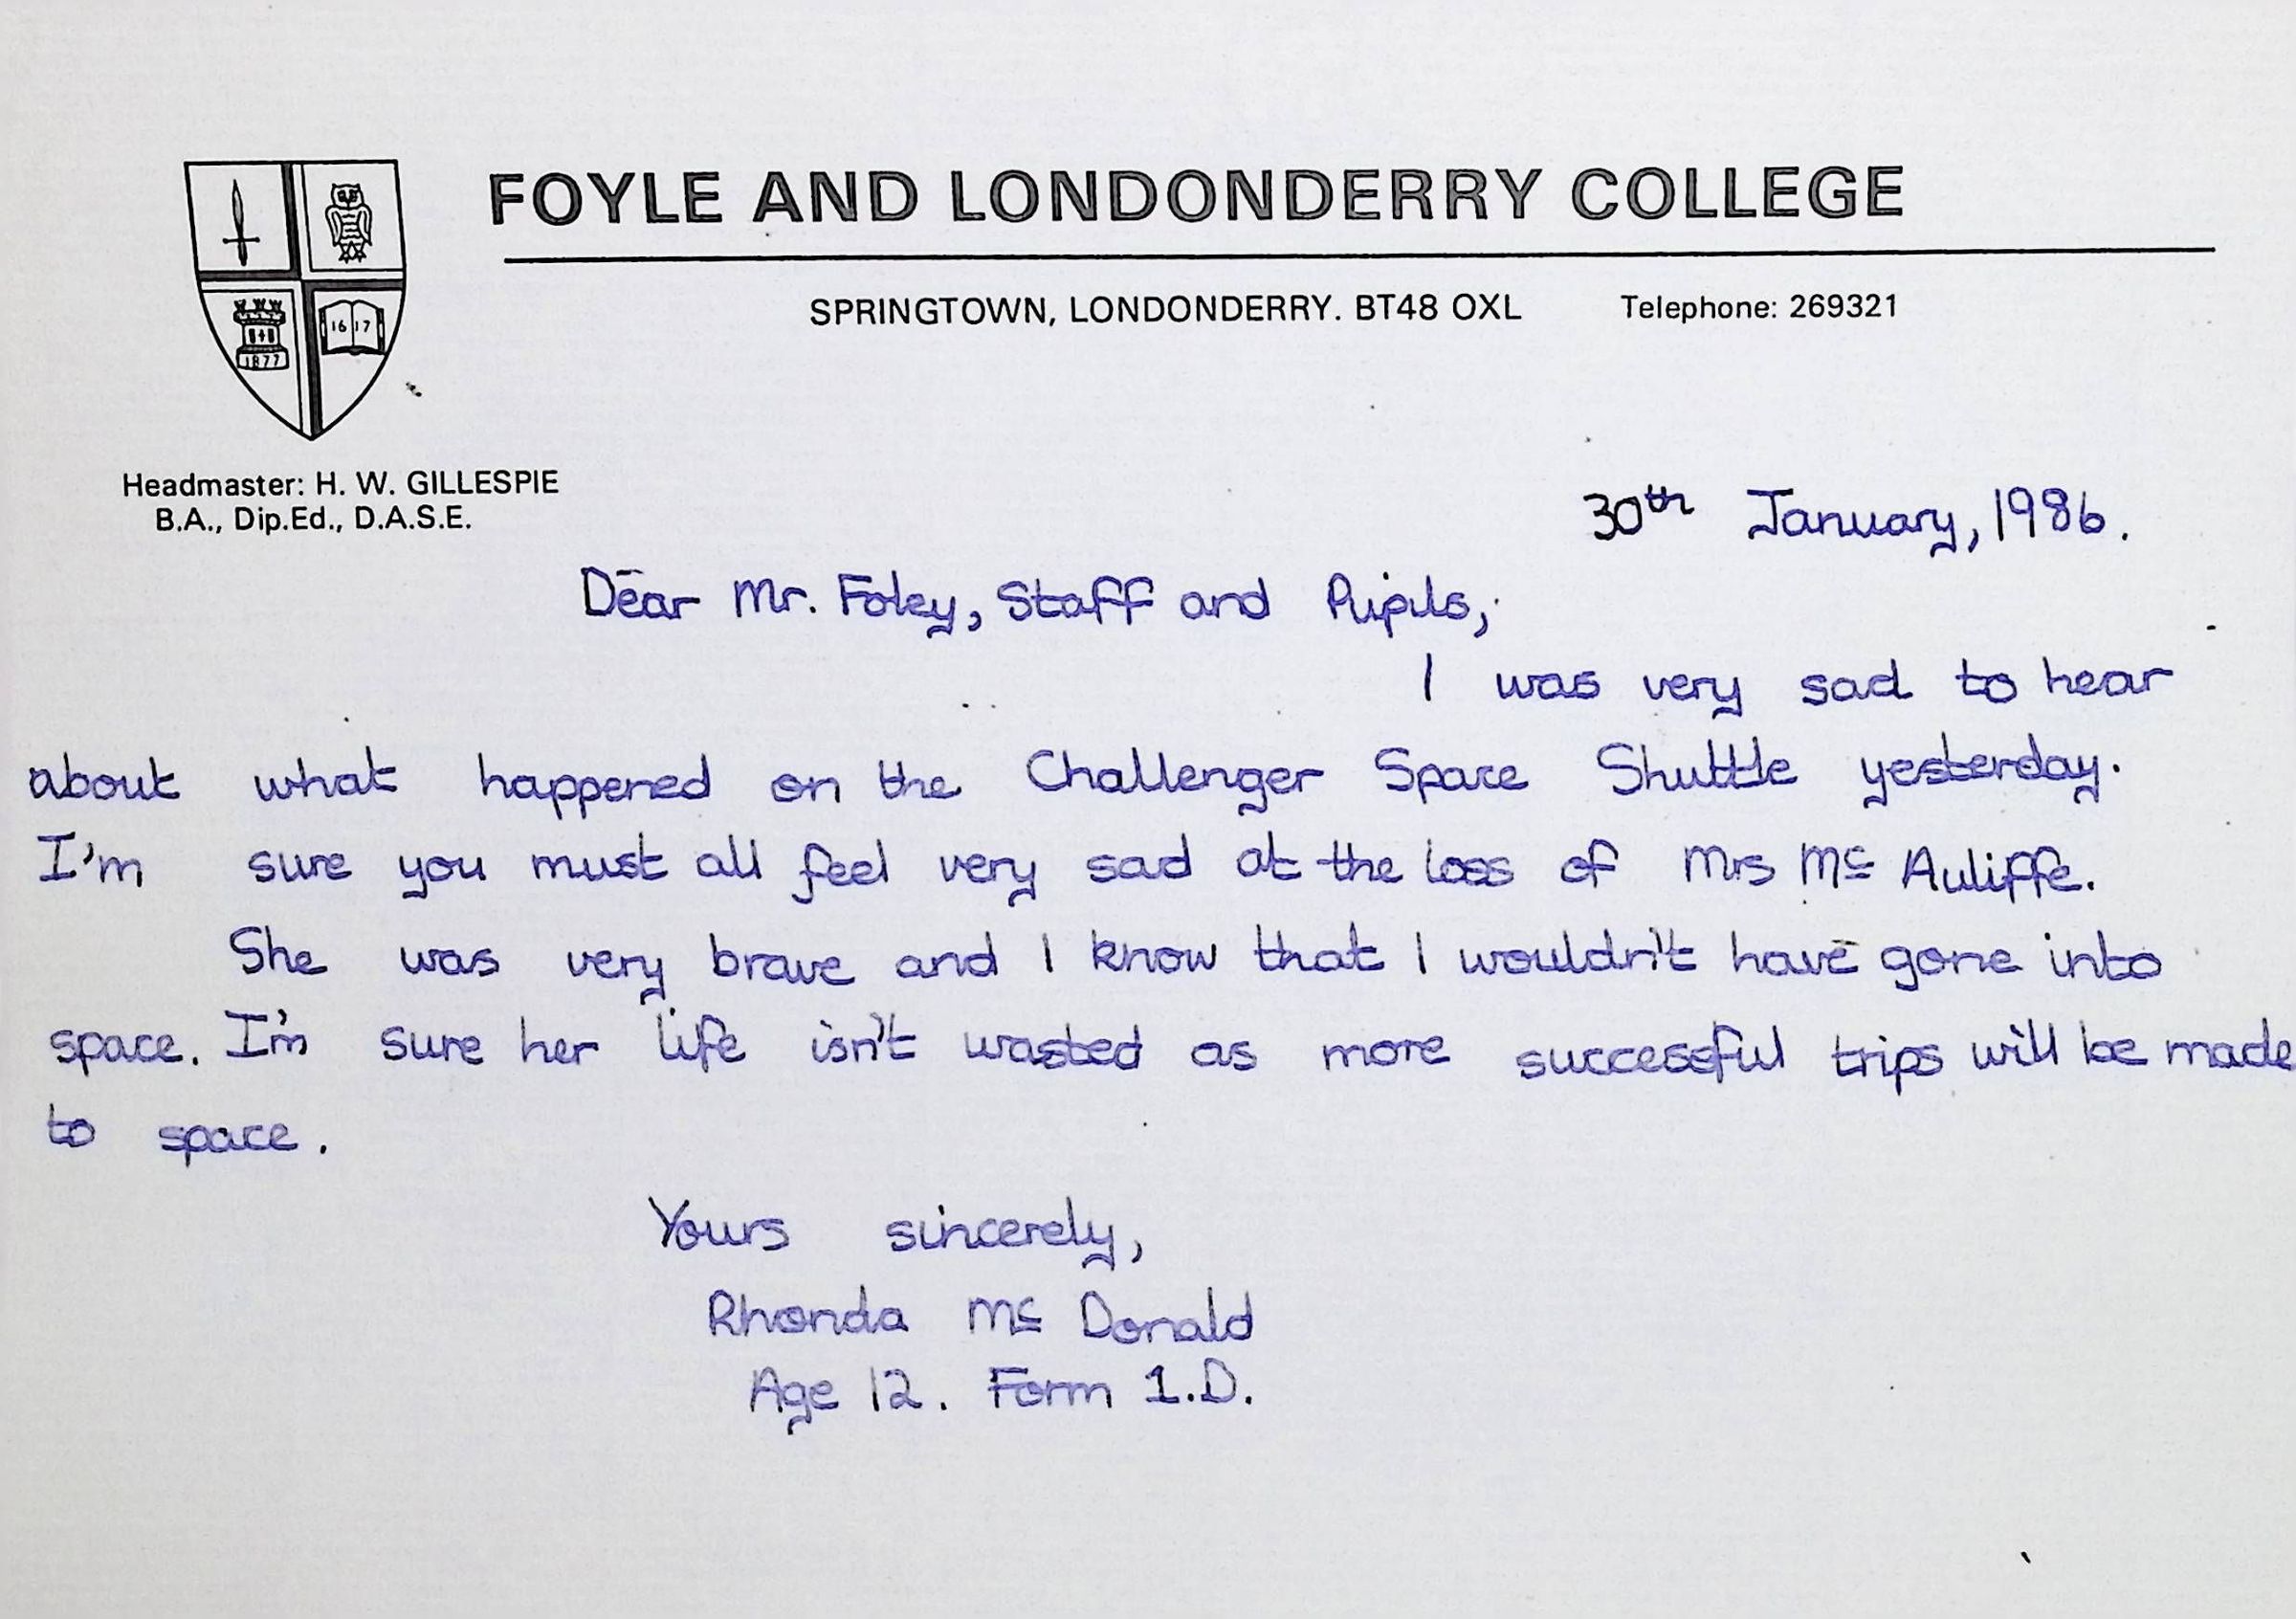 FOYLE AND LONDONDERRY COLLEGE
SPRINGTOWN, LONDONDERRY. BT48 OXL Telephone: 269321
1877
16 17
Headmaster: H. W. GILLESPIE
B.A., Dip.Ed., D.A.S.E.
30th January, 1986.
Dear Mr. Foley, Staff and Pupils,
I was very sad to hear
about what happened on the Challenger Space Shuttle yesterday.
I'm sure you must all feel very sad at the loss of Mrs Mc Auliffe.
She was very brave and I know that I wouldn't have gone into
space. I'm sure her life isn't wasted as more successful trips will be made
to space.
Yours sincerely,
Rhonda Mc Donald
Age 12. Form 1.D.